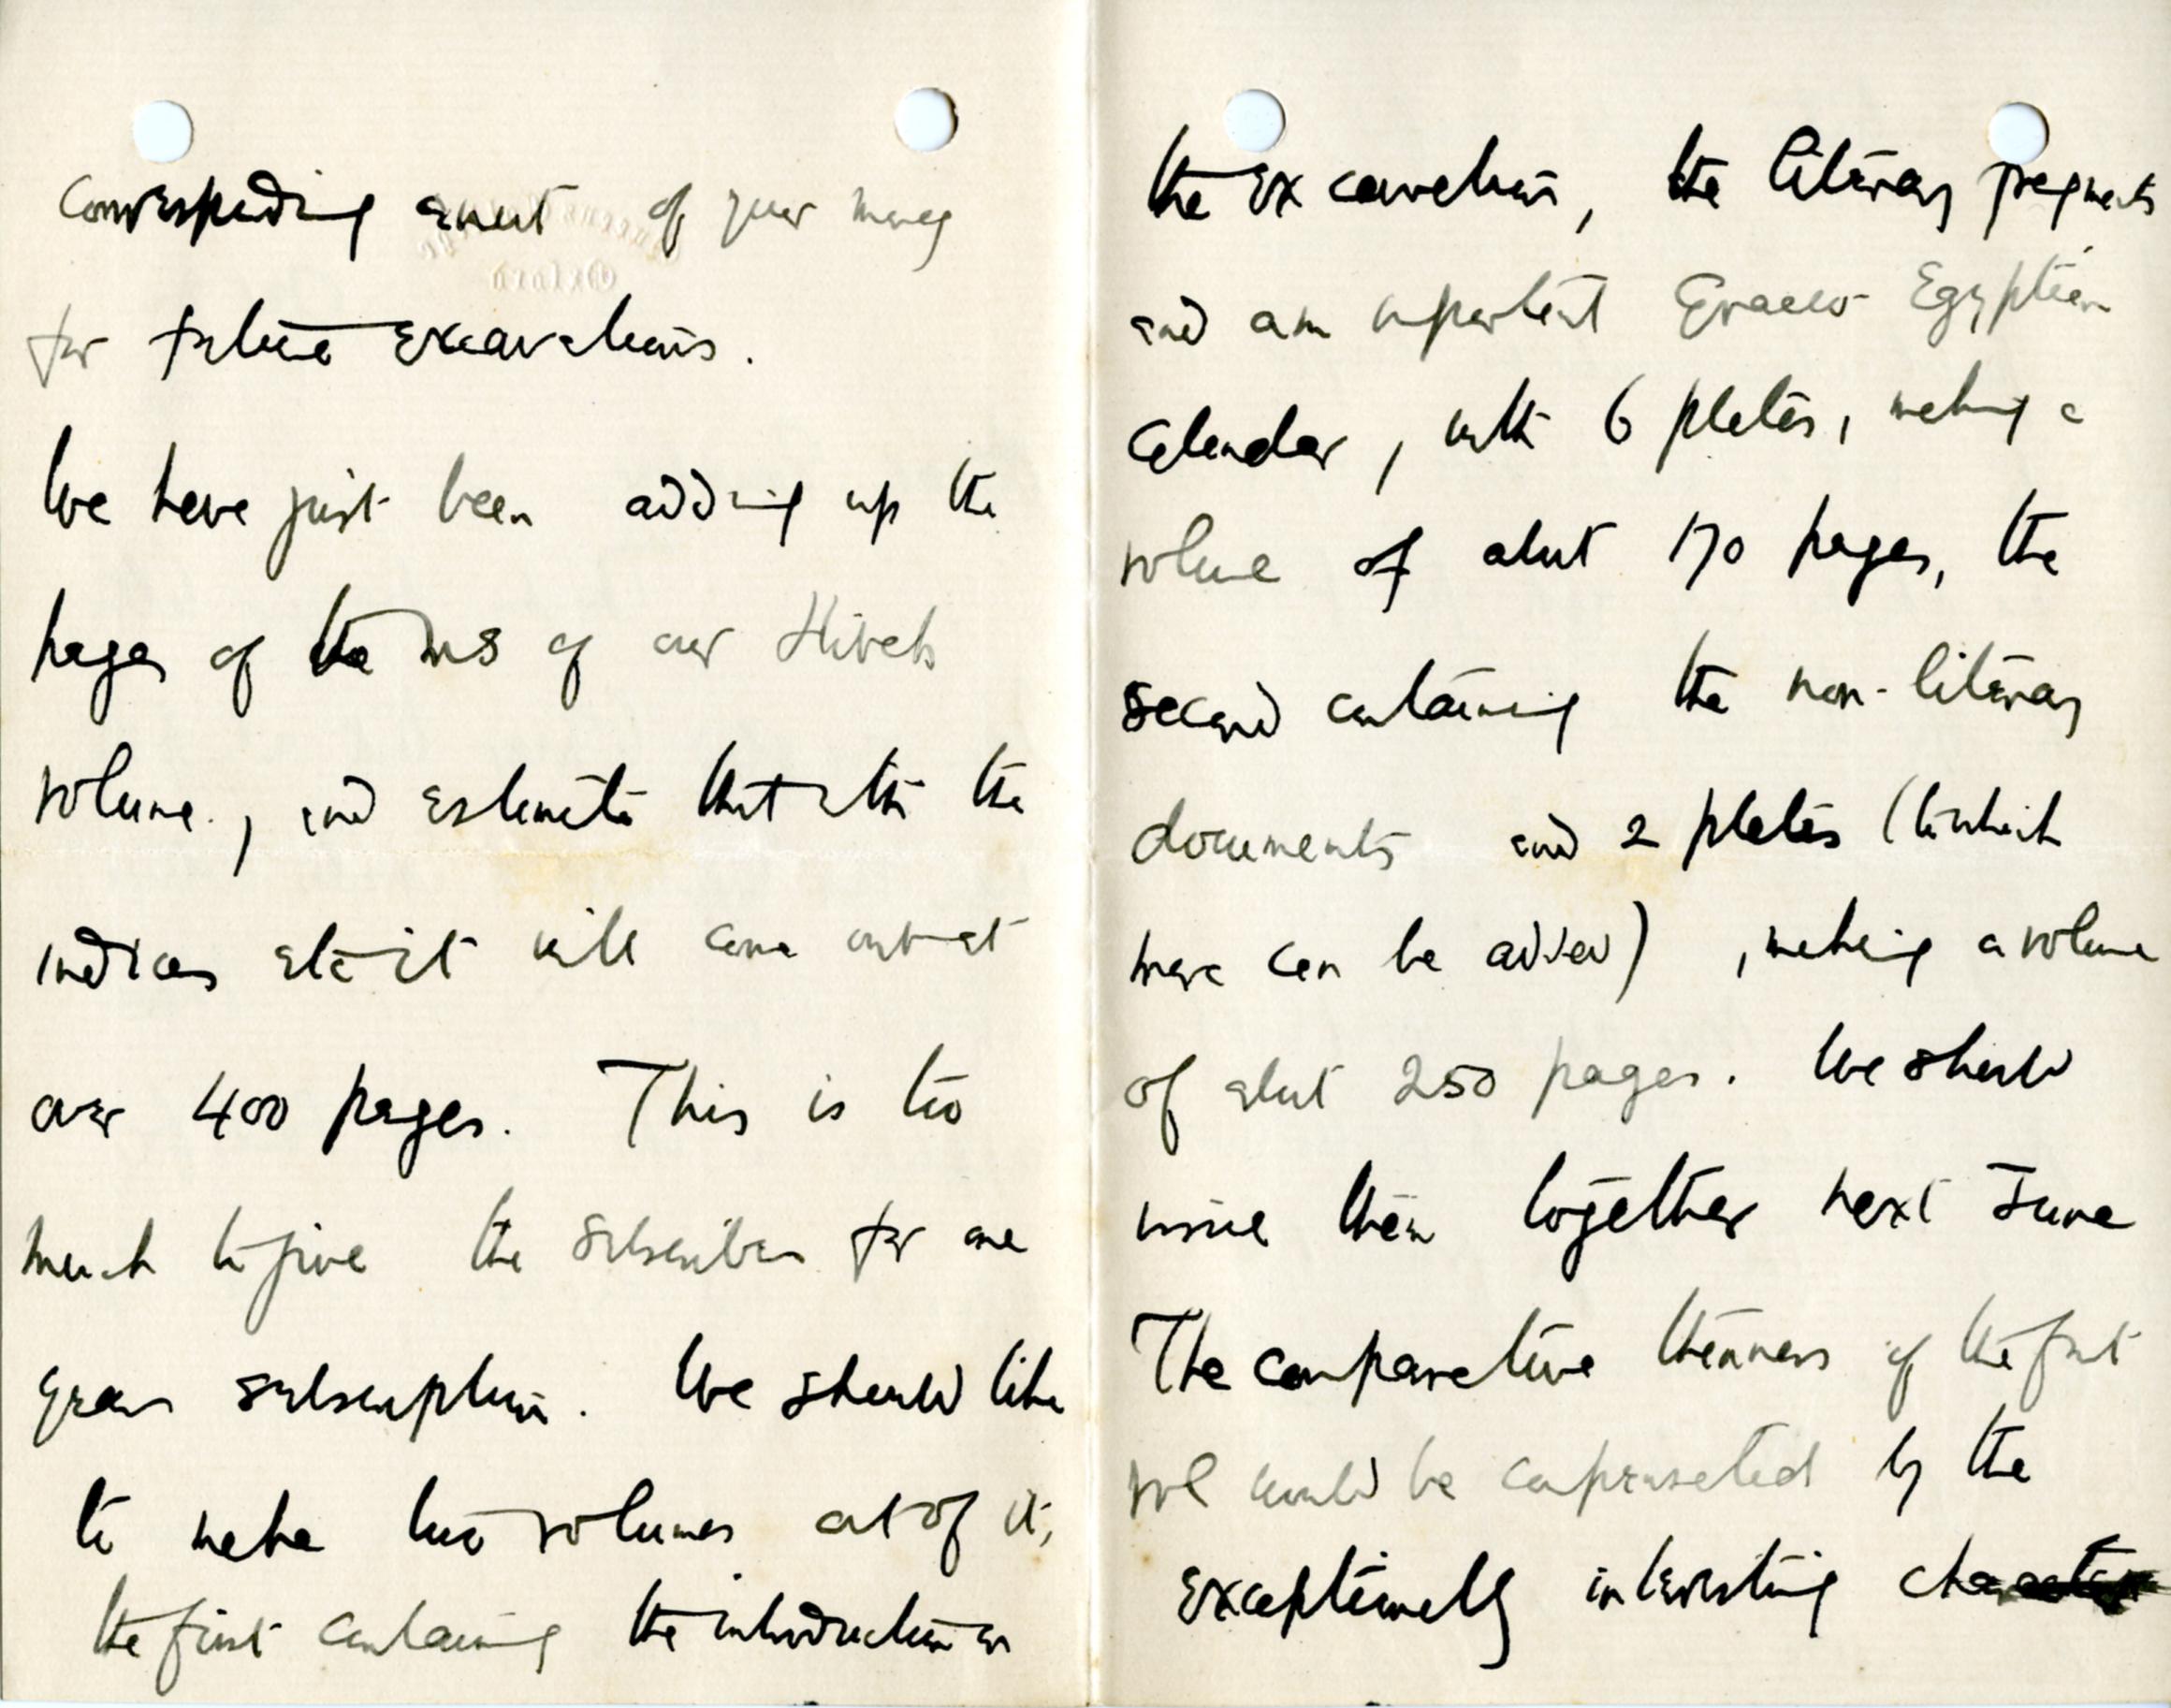 corresponding amount of your money
for future excavations.
We have just been adding up the
pages of the MS of our Hibeh
volume, and estimate that with the
indices etc it will come out at
over 400 pages. This is too
much to give the subscribers for one
year's subscription. We should like
to make two volumes out of it,
the first containing the introduction on
the excavations, the literary fragments
and an important Graeco-Egyptian
Calendar, with 6 plates, making a
volume of about 170 pages, the
second containing the non-literary
documents and 2 plates (to which
more can be added), making a volume
of about 250 pages. We should
issue them together next June
The comparative thinness of the first
vol would be compensated by the
exceptionally interesting character
Queens College
Oxford